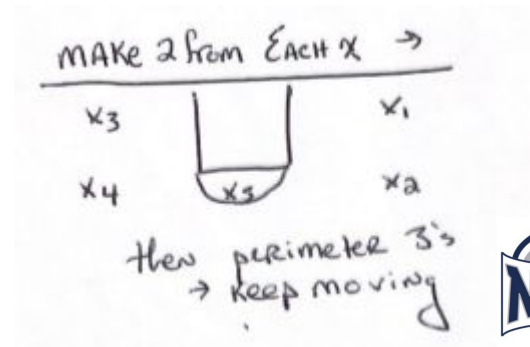 MAKE 2 from EACH X →
X3 X1
X4 X5 X2
then perimeter 3's
→ Keep moving
N